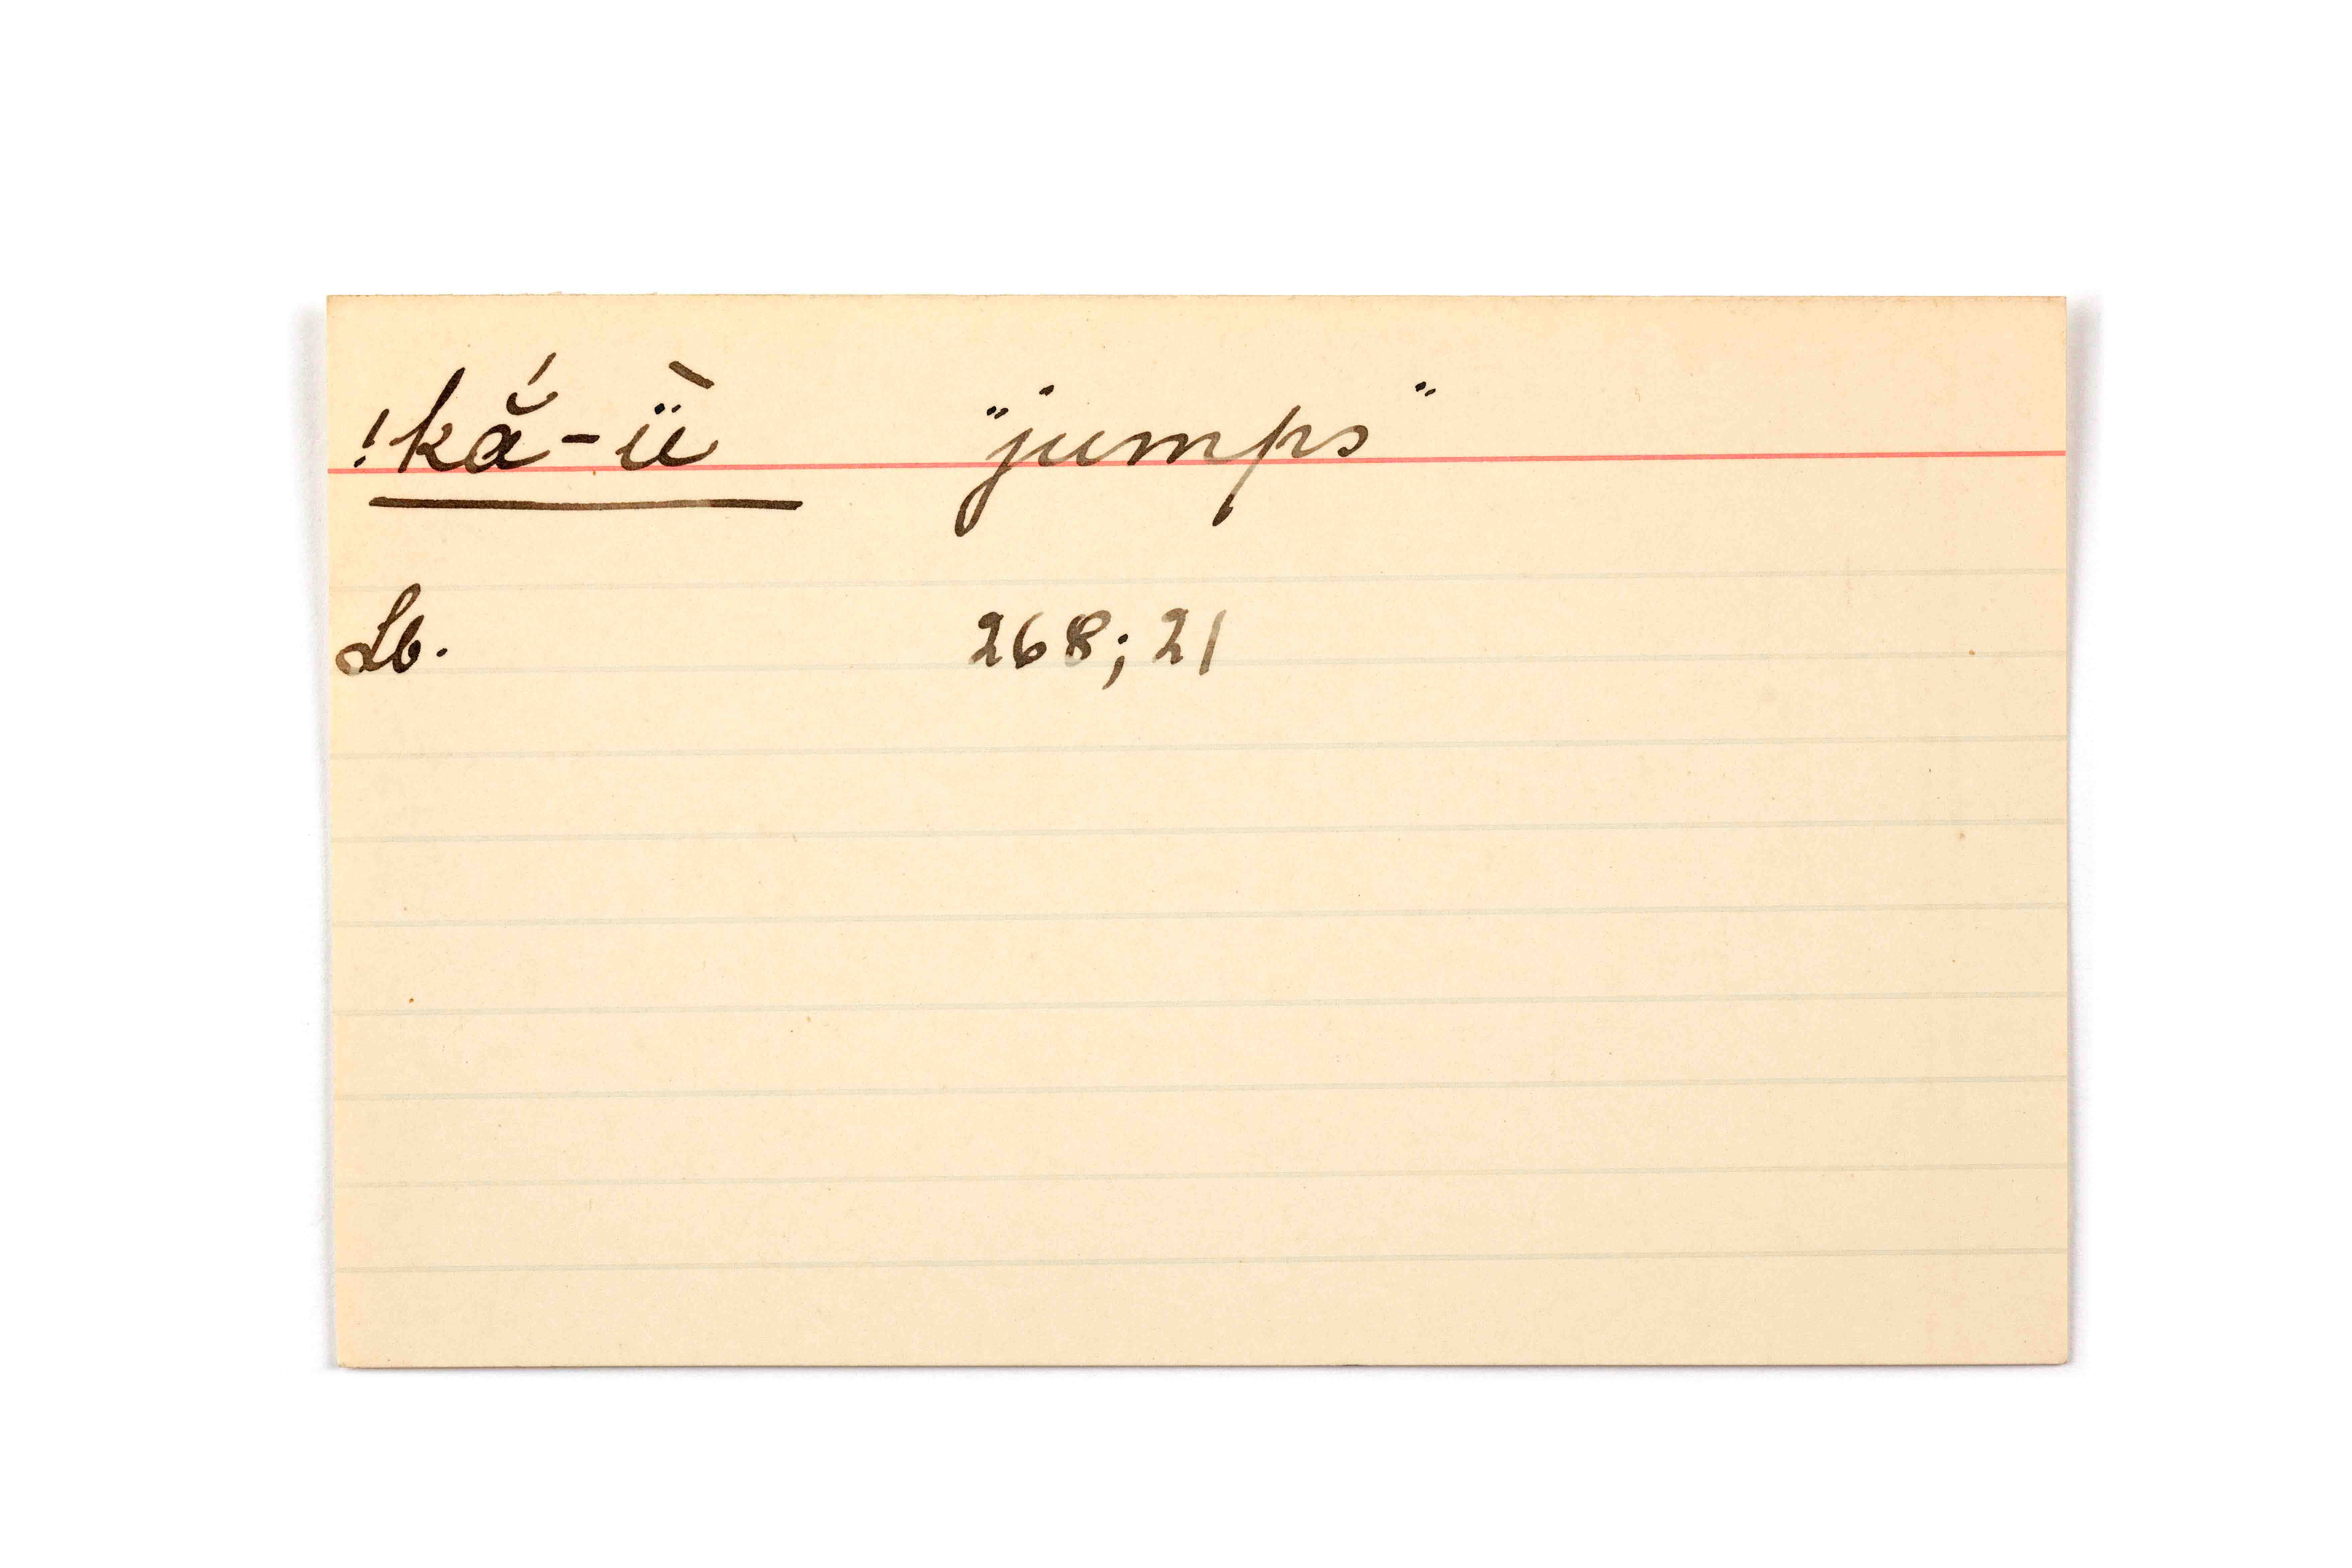 !kắ-ǜ "jumps"
Lb. 268; 21